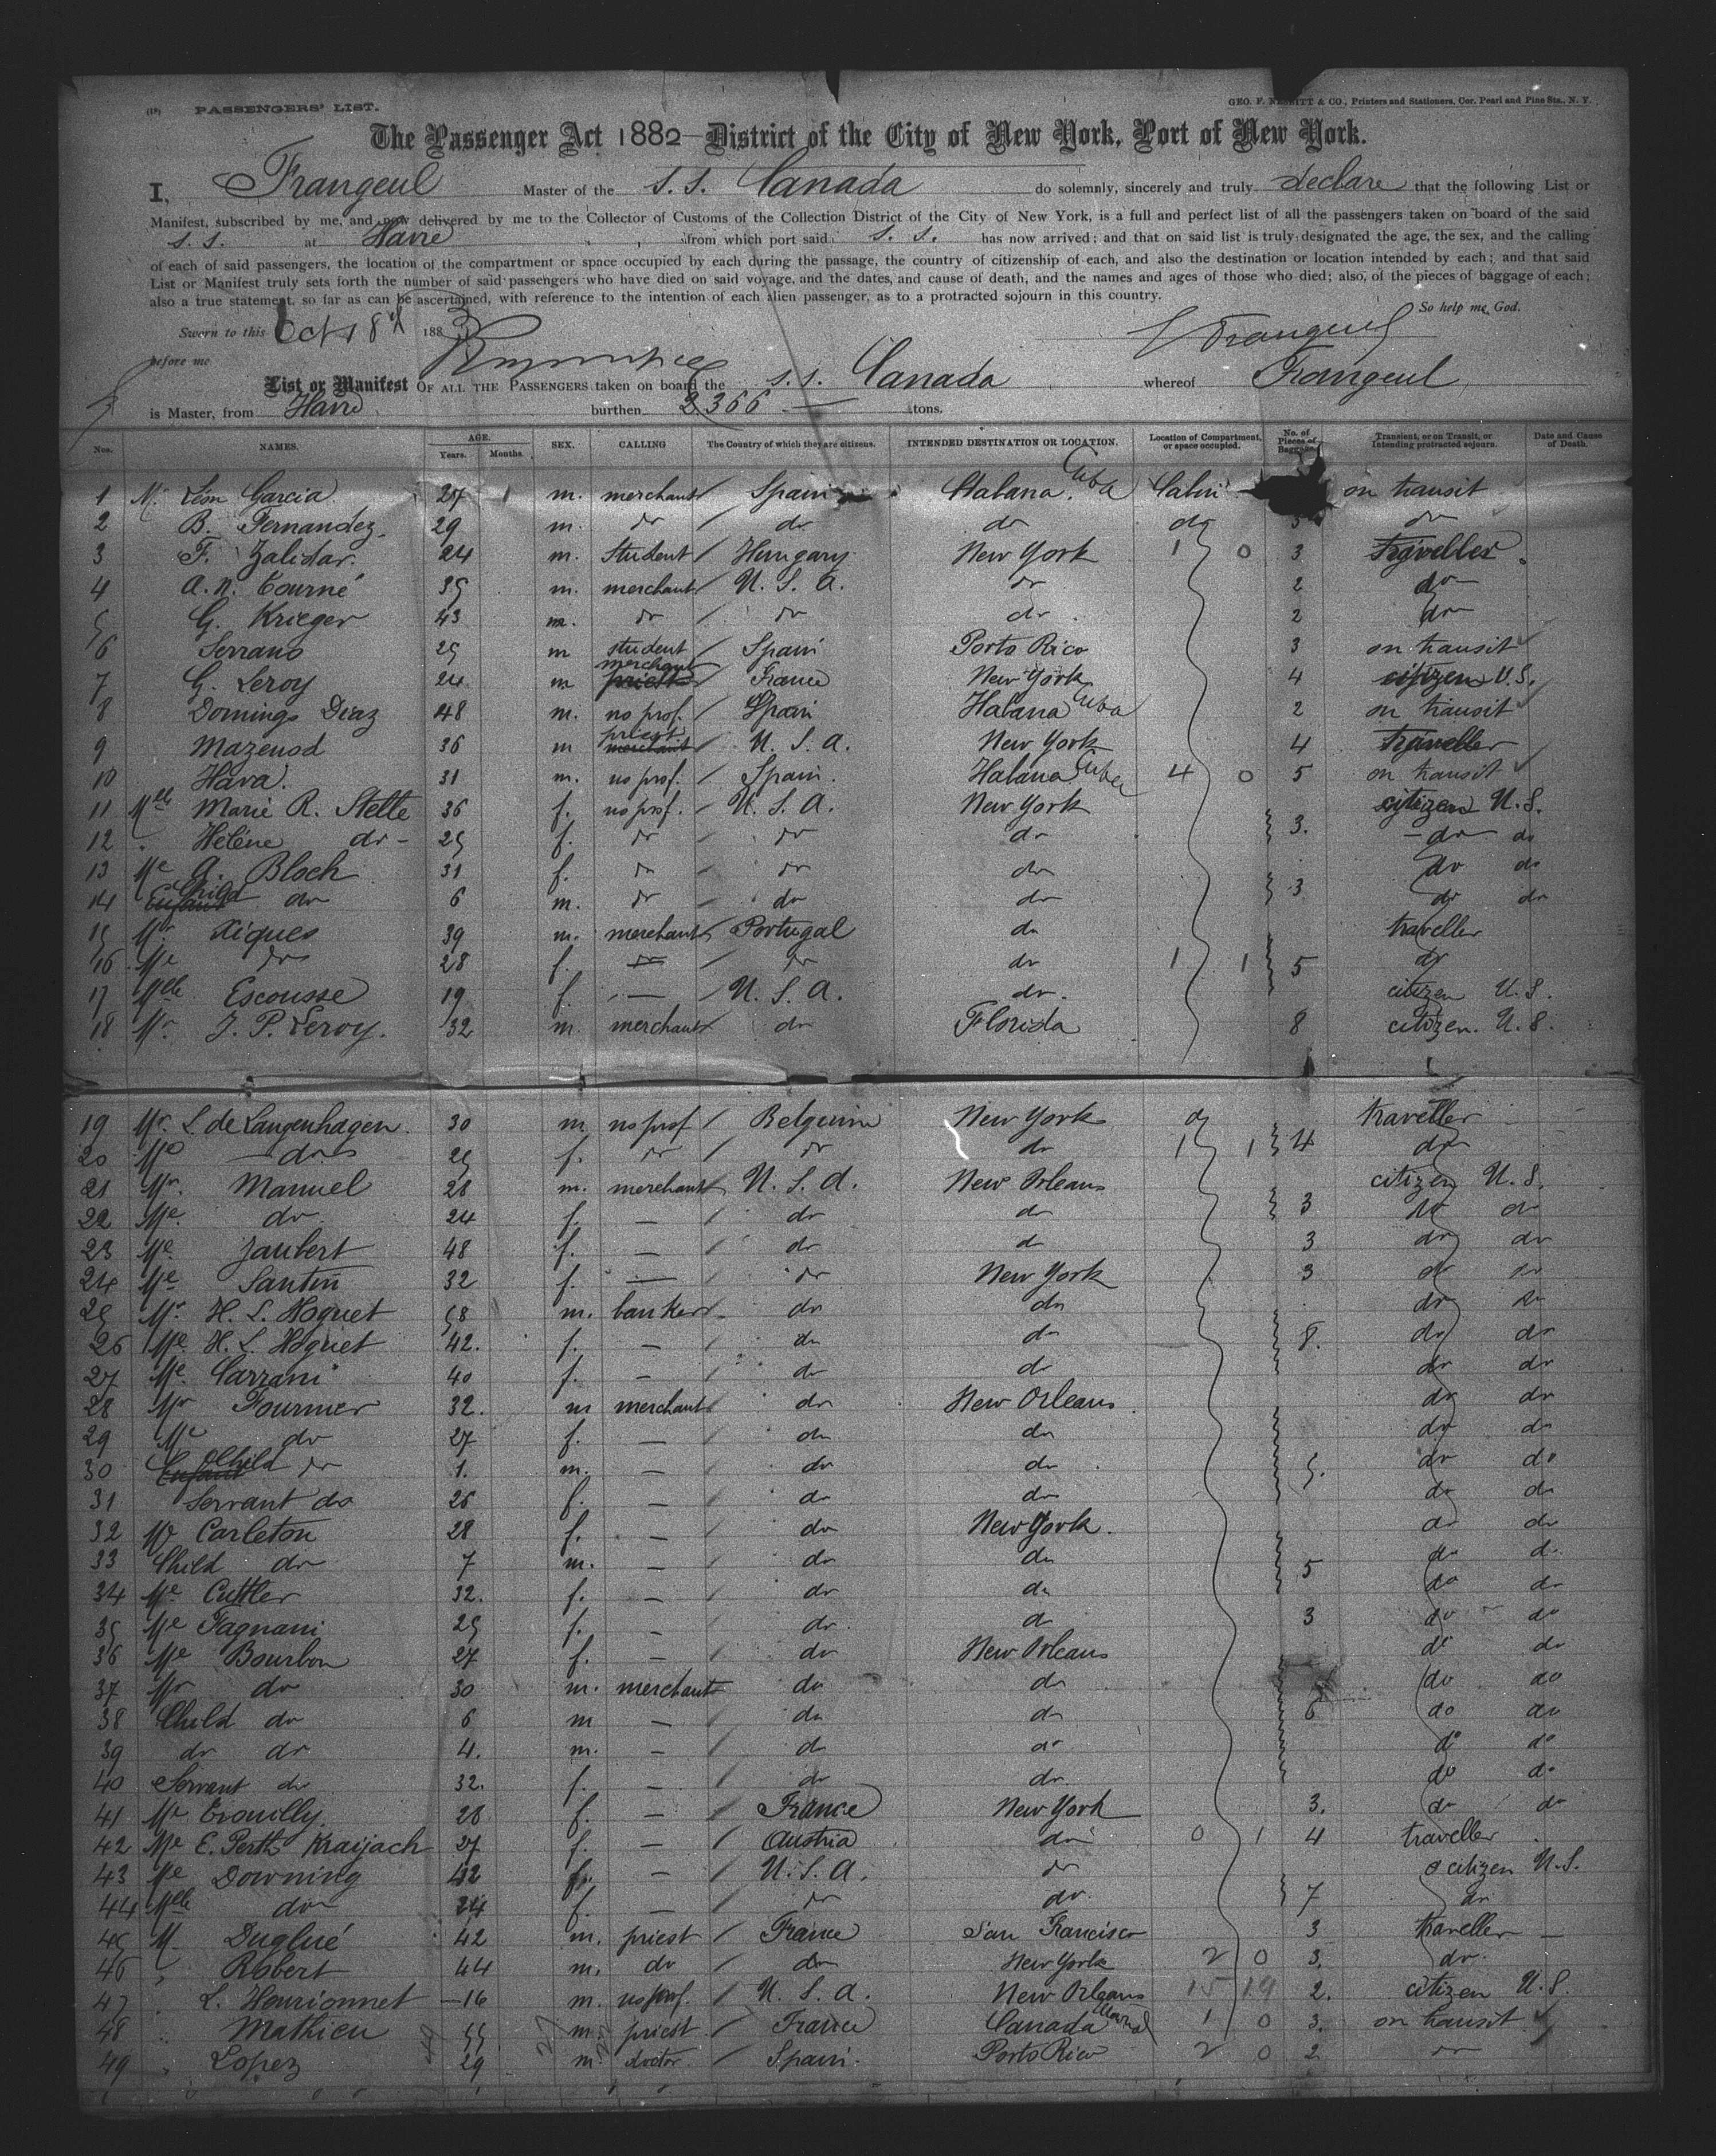 (D) PASSENGERS' LIST.
GEO. F. NESBITT & CO., Printers and Stationers, Cor. Pearl and Pine Sts., N. Y.
The Passenger Act 1882 District of the City of New York, Port of New York.
I, Frangeul Master of the s.s. Canada do solemnly, sincerely and truly declare that the following List or
Manifest, subscribed by me, and now delivered by me to the Collector of Customs of the Collection District of the City of New York, is a full and perfect list of all the passengers taken on board of the said
s.s. at Havre from which port said s.s. has now arrived; and that on said list is truly designated the age, the sex, and the calling
of each of said passengers, the location of the compartment or space occupied by each during the passage, the country of citizenship of each, and also the destination or location intended by each; and that said
List or Manifest truly sets forth the number of said passengers who have died on said voyage, and the dates, and cause of death, and the names and ages of those who died; also, of the pieces of baggage of each;
also a true statement, so far as can be ascertained, with reference to the intention of each alien passenger, as to a protracted sojourn in this country.
So help me, God.
Sworn to this Oct 18th 1883 Frangeul
before me
List or Manifest OF ALL THE PASSENGERS taken on board the s.s. Canada whereof Frangeul
is Master, from Havre burthen 2366 tons.
Nos. NAMES. AGE. Years. Months. SEX. CALLING The Country of which they are citizens. INTENDED DESTINATION OR LOCATION. Location of Compartment, or space occupied. No. of Pieces of Baggage. Transient, or on Transit, or Intending protracted sojourn. Date and Cause of Death.
1 Mr Léon Garcia 27 m. merchant Spain Habana Cuba Cabin on transit
2 B. Fernandez 29 m. do do do do 5 do
3 F. Zalidar. 24 m. student Hungary New York 1 0 3 traveller
4 A. N. Tourné 35 m. merchant U. S. A. do 2 do
5 G. Krieger 43 m. do do do 2 do
6 Serrano 25 m student Spain Porto Rico 3 on transit
7 G. Leroy 24 m merchant priest France New York 4 citizen U.S.
8 Domingo Diaz 48 m. no prof. Spain Habana Cuba 2 on transit
9 Mazenod 36 m priest merchant U. S. A. New York 4 traveller
10 Hava. 31 m. no prof. Spain. Habana Cuba 4 0 5 on transit
11 Mlle Marie R. Stelle 36 f. no prof. U. S. A. New York citizen U.S.
12 Hélène do 25 f. do do do 3. do do
13 Me A. Bloch 31 f. do do do do do
14 Enfant Child do 6 m. do do do 3 do do
15 Mr. Xiques 39 m. merchant Portugal do traveller
16 Me do 28 f. do do do 1 1 5 do
17 Mlle Escousse 19 f. — U. S. A. do. citizen U. S.
18 Mr J. P. Leroy. 32 m. merchant do Florida 8 citizen. U. S.
19 Mr. L. de Langenhagen. 30 m no prof Belgium New York do traveller
20 Me do 25 f. do do do 1 1 4 do
21 Mr. Manuel 28 m. merchant U. S. A. New Orleans citizen U. S.
22 Me. do 24 f. — do do 3 do do
23 Me Jaubert 48 f. — do do 3 do do
24 Me Santin 32 f. — do New York 3 do do
25 Mr H. L. Hoguet 58 m. banker do do do do
26 Me H. L. Hoguet 42. f. — do do 8. do do
27 Me Carrani 40 f. — do do do do
28 Mr Fournier 32. m merchant do New Orleans do do
29 Me do 27 f. — do do do do
30 Enfant Child do 1. m. — do do 5. do do
31 Servant do 26 f. — do do do do
32 Me Carleton 28 f. — do New York. do do
33 Child do 7 m. — do do 5 do do
34 Me Cuttler 32. f. — do do do do
35 Me Fagnani 25 f. — do do 3 do do
36 Me Bourbon 27 f. — do New Orleans do do
37 Mr do 30 m. merchant do do do do
38 Child do 6 m — do do 6 do do
39 do do 4. m. — do do do do
40 Servant do 32. f. — do do do do
41 Me Trouilly. 28 f. — France New York 3. do do
42 Me E. Perth Kraijach 27 f. — Austria do 0 1 4 traveller
43 Me Downing 42 f. — U. S. A. do citizen U.S.
44 Mlle do 24 f. — do do 7 do
45 M. Duglué 42 m. priest France San Francisco 3 traveller
46 Robert 44 m. do do New York 2 0 3. do
47 L. Henrionnet 16 m. no prof. U. S. A. New Orleans 15 19 2. citizen U. S.
48 Mathieu 55 m. priest France Canada 1 0 3. on transit
49 Lopez 29 m. doctor. Spain. Porto Rico 2 0 2 do